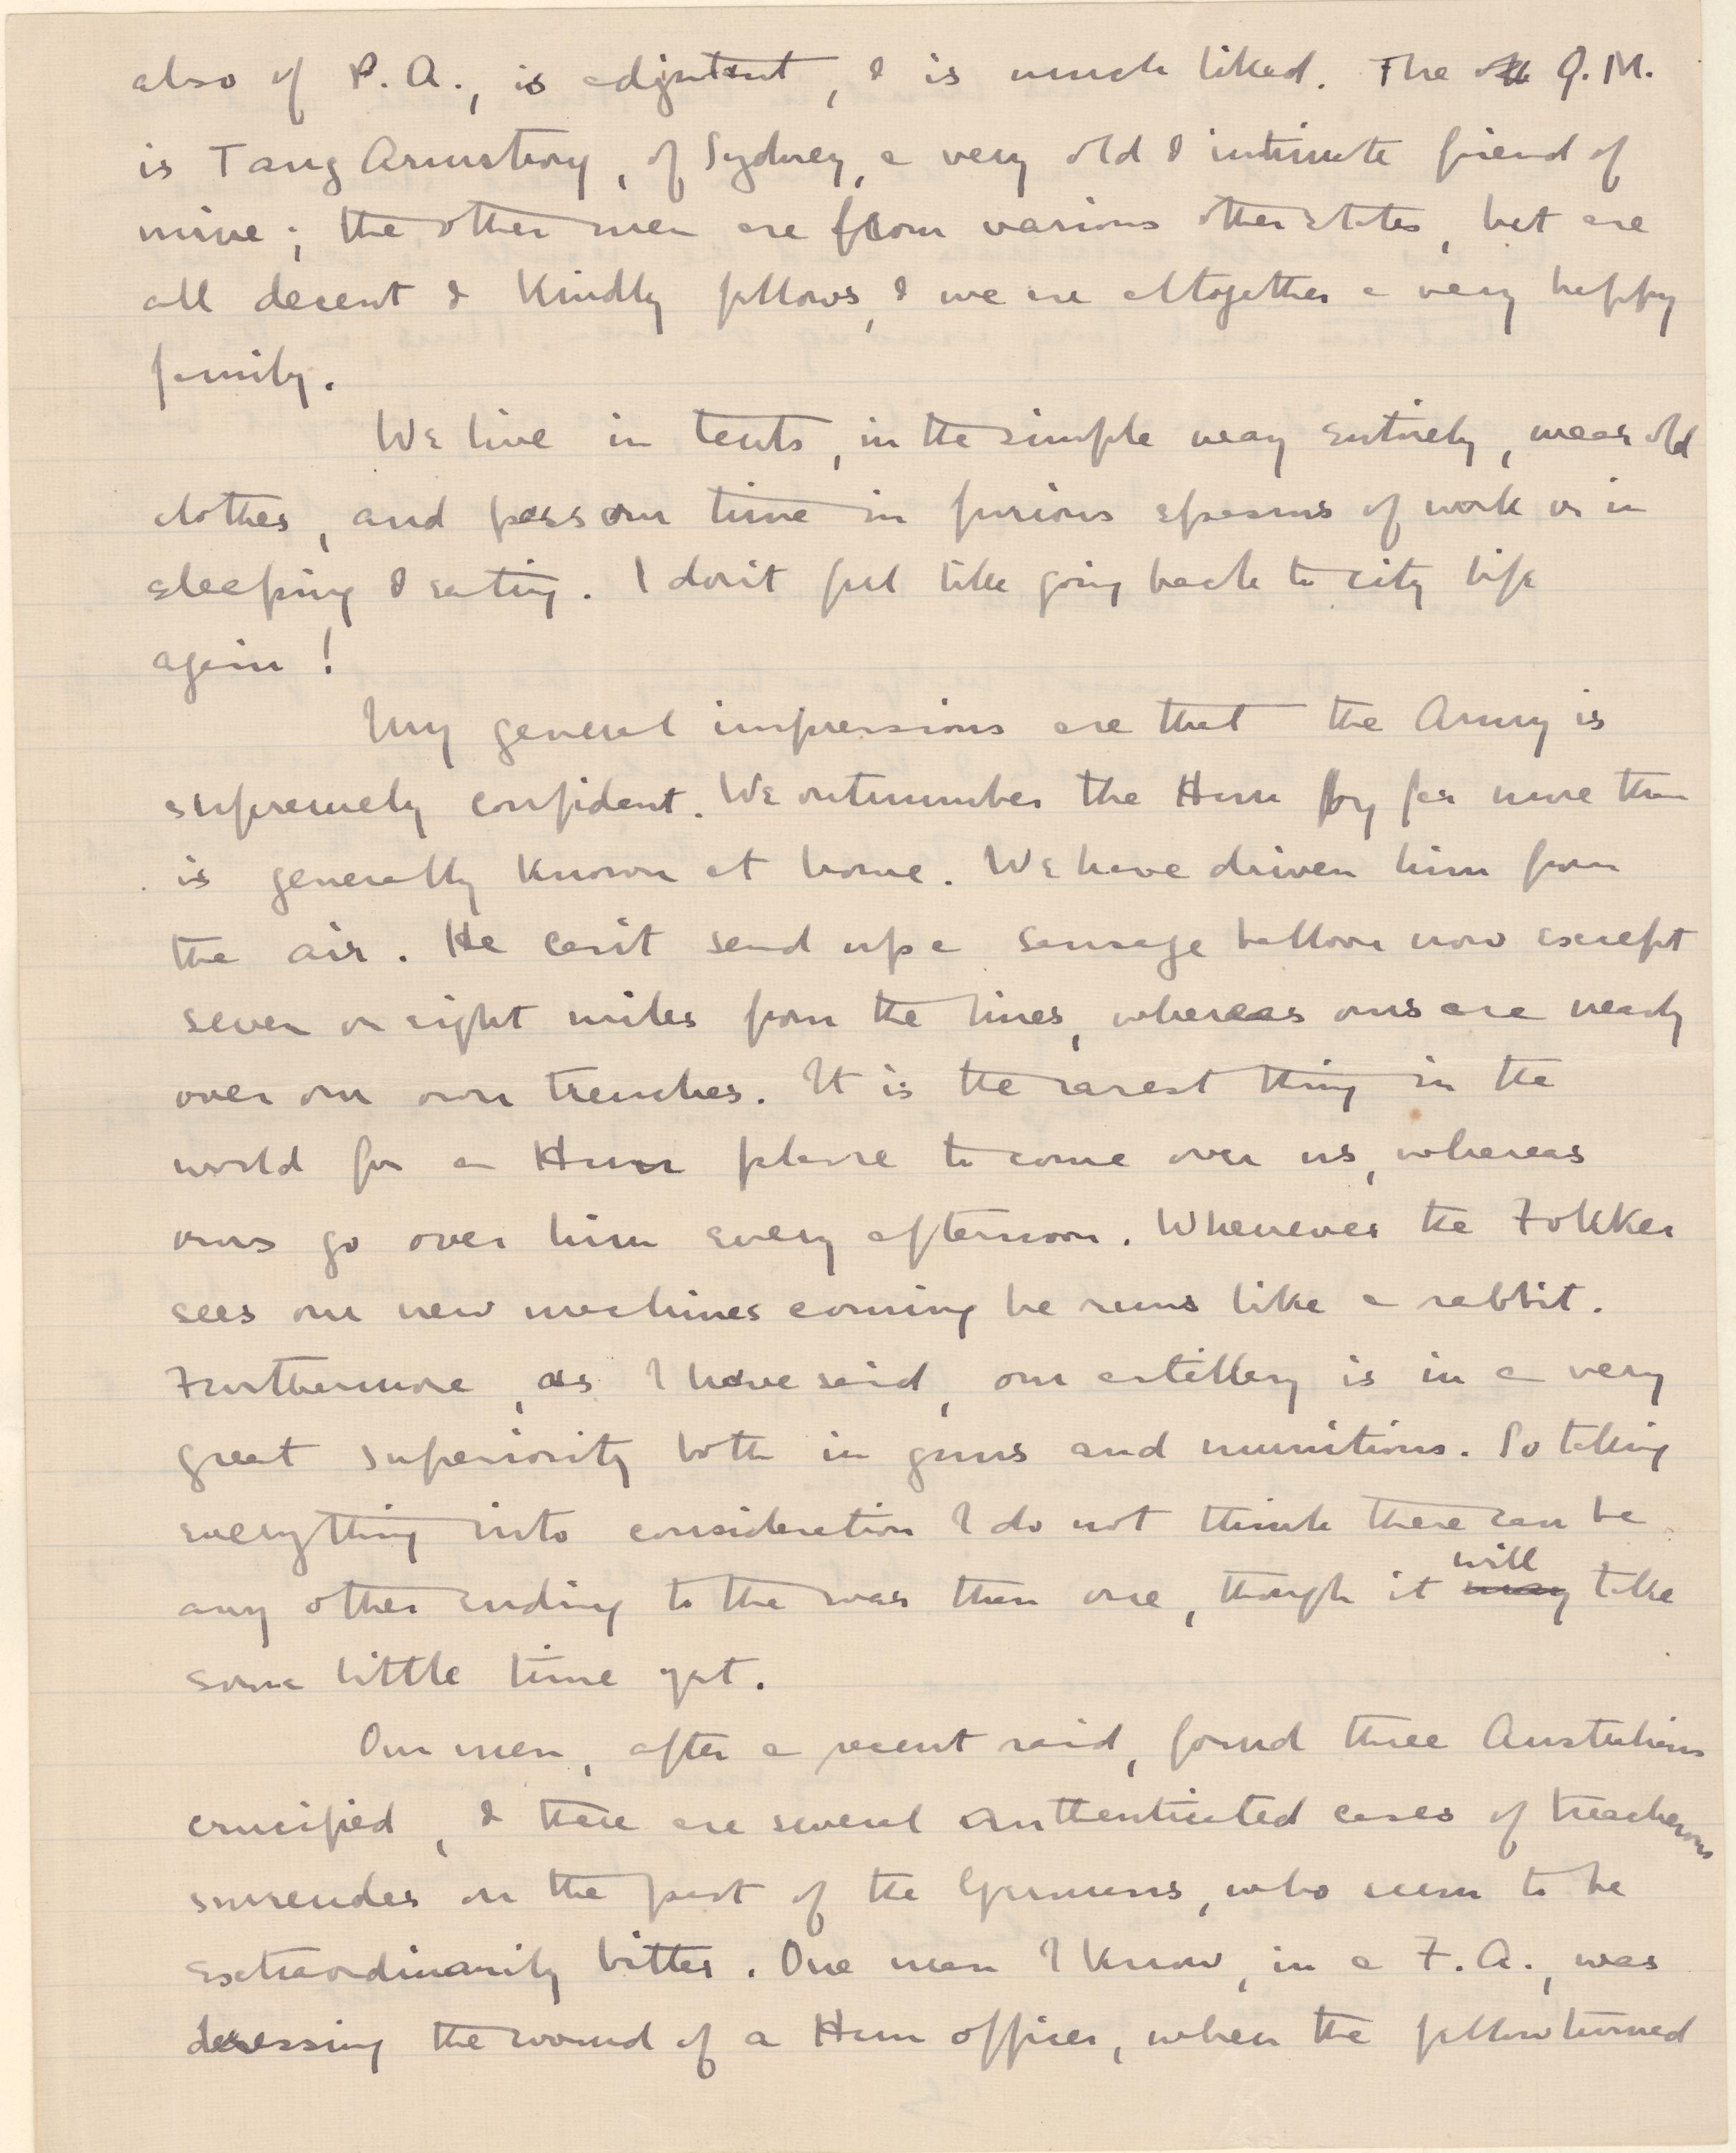 also of P.A., is adjutant, & is much liked. The Q.M.
is Tang Armstrong, of Sydney, a very old & intimate friend of
mine; the other men are from various other states, but are
all decent & kindly fellows, & we are altogether a very happy
family.
We live in tents, in the simple way entirely, wear old
clothes, and pass our time in furious spasms of work or in
sleeping & eating. I don't feel like going back to city life
again!
My general impressions are that the Army is
supremely confident. We outnumber the Hun by far more than
is generally known at home. We have driven him from
the air. He can't send up a sausage balloon now except
seven or eight miles from the lines, whereas ours are nearly
over our own trenches. It is the rarest thing in the
world for a Hun plane to come over us, whereas
ours go over him every afternoon. Whenever the Fokker
sees our new machines coming he runs like a rabbit.
Furthermore, as I have said, our artillery is in a very
great superiority both in guns and munitions. So taking
everything into consideration I do not think there can be
any other ending to the war than one, though it may will take
some little time yet.
Our men, after a recent raid, found three Australians
crucified, & there are several authenticated cases of treacherous
surrender on the part of the Germans, who seem to be
extraordinarily bitter. One man I know, in a F.A., was
dressing the wound of a Hun officer, when the fellow turned